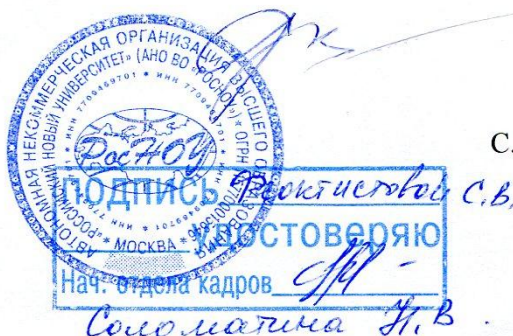 АВТОНОМНАЯ НЕКОММЕРЧЕСКАЯ ОРГАНИЗАЦИЯ ВЫСШЕГО ОБРАЗОВАНИЯ
«РОССИЙСКИЙ НОВЫЙ УНИВЕРСИТЕТ» (АНО ВО «РОСНОУ») ОГРН
ИНН 7709469701
РосНОУ
* МОСКВА *
С.
ПОДПИСЬ Феоктистовой С.В.
УДОСТОВЕРЯЮ
Нач. отдела кадров
Соломатина Н.В.